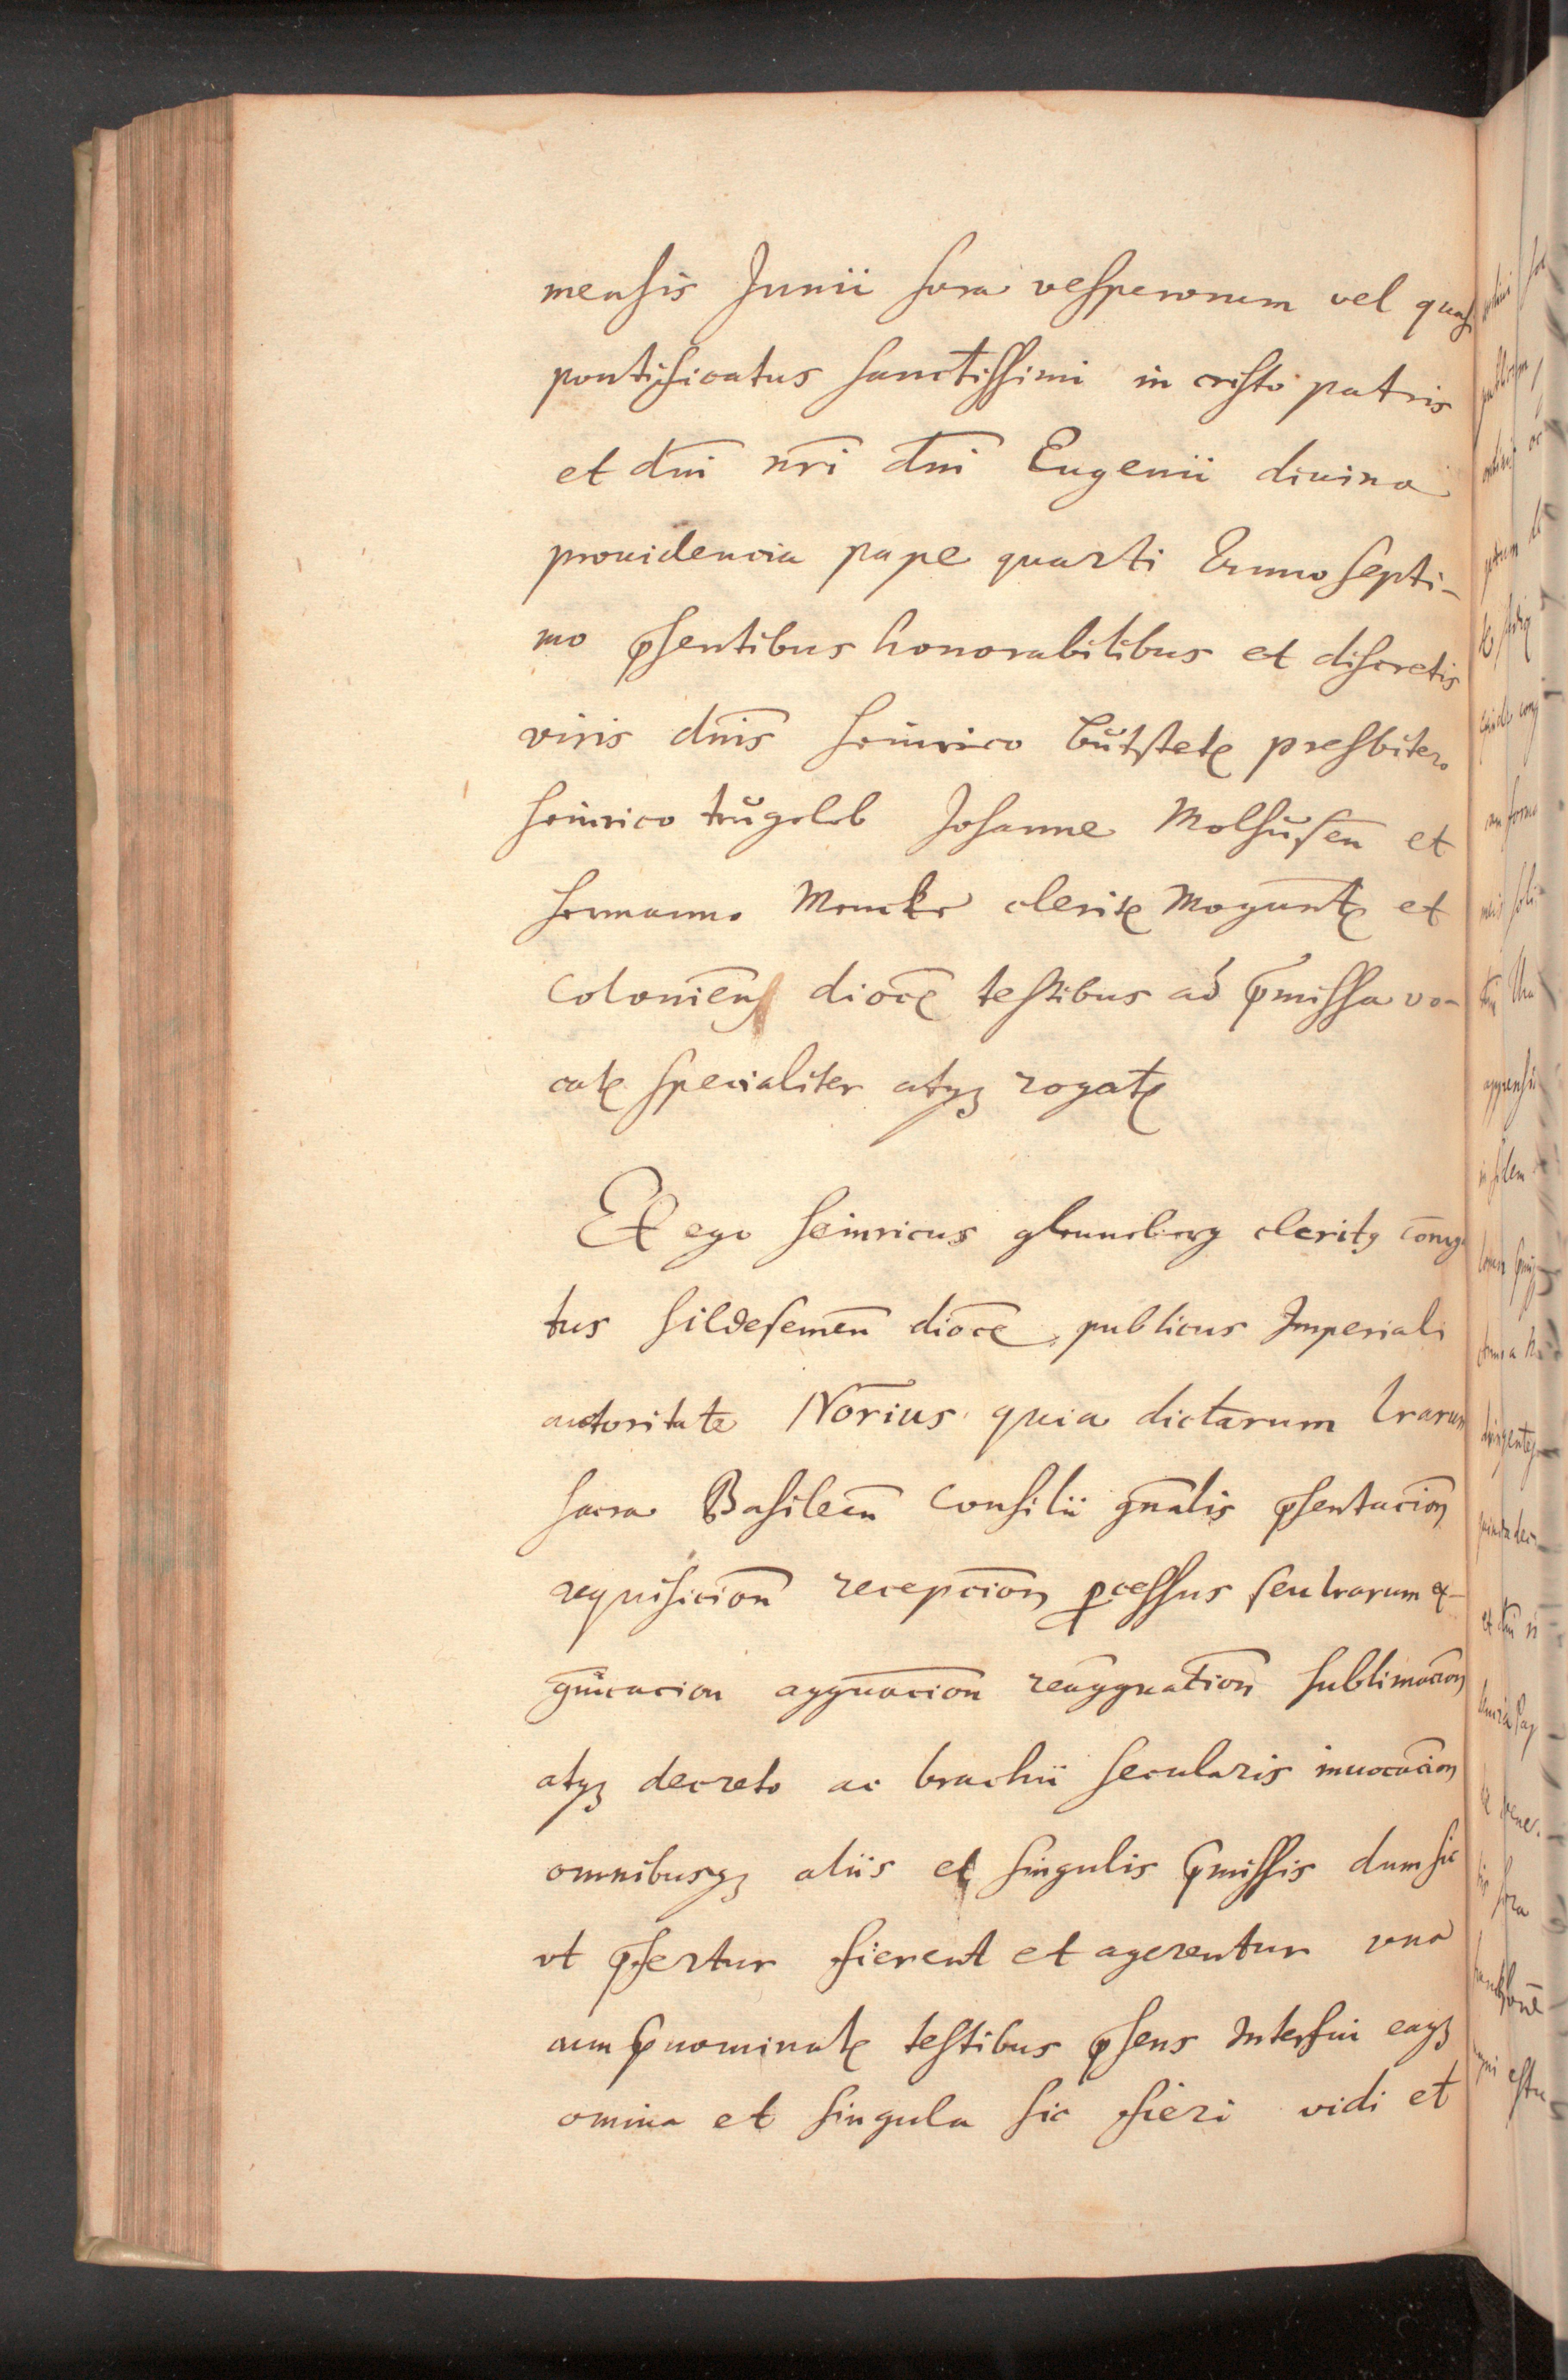 mensis Junii hora vesperorum vel quasi
pontificatus sanctissimi in cristo patris
et dn̄i nr̄i dn̄i Eugenii diuina
prouidencia pape quarti Anno septi-
mo p̄sentibus honorabilibus et discretis
viris dn̄is heinrico bŭtstetꝭ presbitero
heinrico trŭgeleb Johanne Molhŭsen̄ et
hermanno Moncke clericꝭ Magunt̄ꝭ et
Colonien̄s dioc̄ꝭ testibus ad p̄missa vo-
catꝭ specialiter atqꝫ rogatꝭ
Et ego heinricus clericꝯ
tus hildesemen̄ dioc̄ꝭ publicus Imperiali
auctoritate No͞rius quia dictarum lrarum
sacra Basilien̄ Consilii gn̄alis p̄sentacion̄
requisicion̄ recepcion̄ ꝓcessus seu lrarum ex-
aggrauacion̄ reaggrauation̄ sublimacion̄
atqꝫ decreto ac brachii secularis inuocacion̄
omnibusqꝫ aliis et singulis p̄missis dum sic
vt p̄fertur fierent et agerentur vna
cum p̄nominatꝭ testibus p̄sens Interfui eaqꝫ
omnia et singula sic fieri vidi et